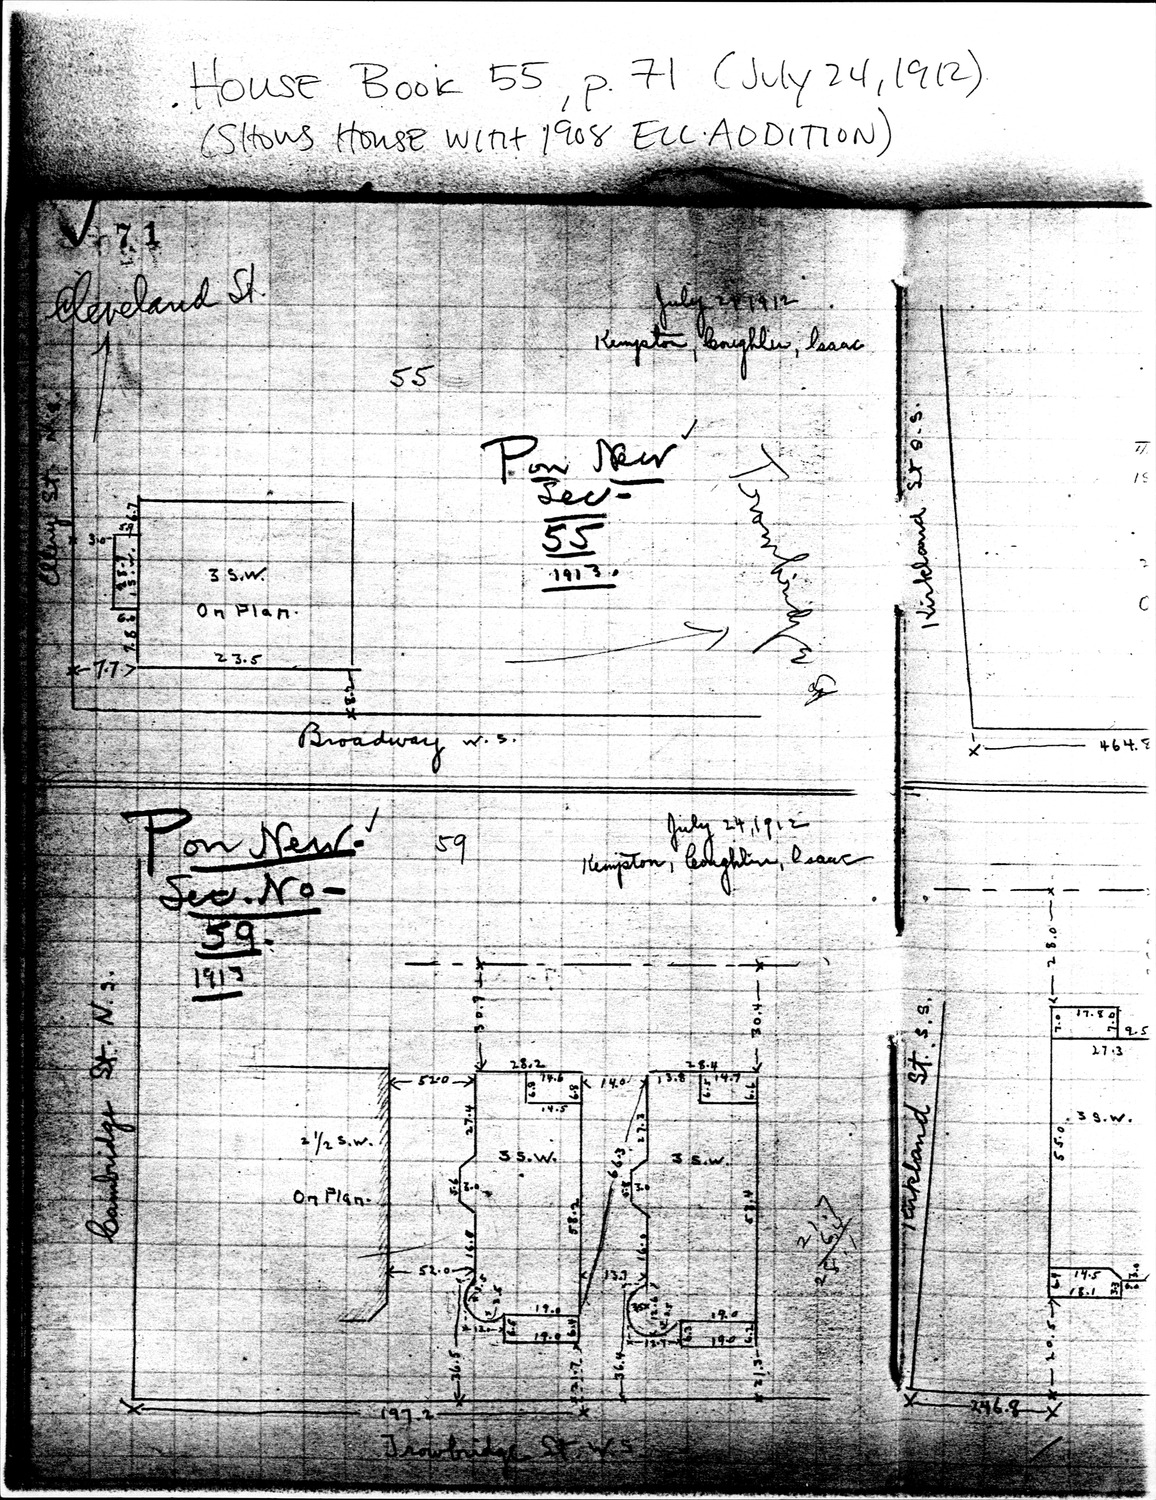 House Book 55, p. 71 (July 24, 1912)
(Shows House with 1908 Ell Addition)
71
Cleveland St.
July 24 1912
Kempston, Coughlin, Isaac
55
P on New
Sec-
55
1913.
Ellery St. N.E.
3.0
3 S.W.
On Plan.
23.5
7.7
8.2
Broadway W. S.
Kirkland St S.S.
464.8
P on New-
Sec. No-
59.
1913
59
July 24, 1912
Kempston, Coughlin, Isaac
Cambridge St. N. S.
30.9
30.4
28.2
28.4
52.0
14.6
6.8
6.8
14.0
13.8
14.7
6.5
6.6
14.5
27.4
27.3
2 1/2 S.W.
On Plan.
3 S.W.
3 S.W.
66.3
5.6
3.0
5.8
3.0
58.2
53.4
16.8
16.9
52.0
13.7
19.0
19.0
19.0
19.0
36.5
21.7
36.4
21.3
197.2
Trowbridge St W.S.
Kirkland St. S.S.
28.0
7.0
17.8
7.0
9.5
27.3
3 S.W.
55.0
6.9
14.5
18.1
3.3
3.0
20.5
246.8